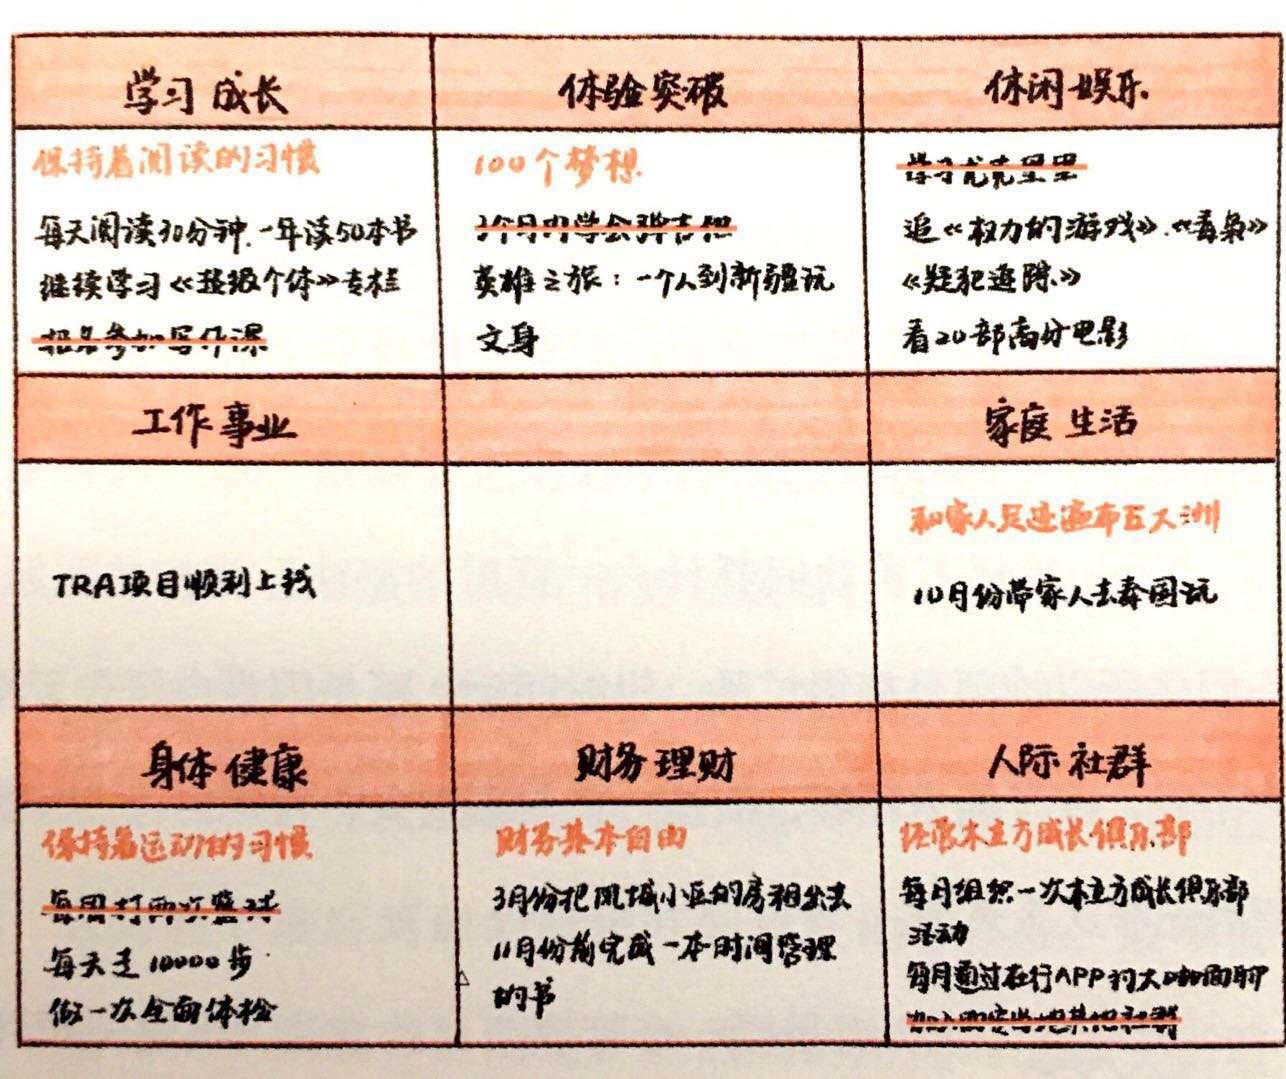 学习成长
体验突破
休闲娱乐
保持着阅读的习惯
每天阅读30分钟,一年读50本书
继续学习《超级个体》专栏
报名参加写作课
100个梦想
3个月内学会弹吉他
英雄之旅:一个人到新疆玩
文身
学习尤克里里
追《权力的游戏》、《毒枭》
《疑犯追踪》
看20部高分电影
工作事业
家庭生活
TRA项目顺利上线
和家人足迹遍布五大洲
10月份带家人去泰国玩
身体健康
财务理财
人际社群
保持着运动的习惯
每周打两次篮球
每天走10000步
做一次全面体检
财务基本自由
3月份把凤城小区的房租出去
11月份前完成一本时间管理
的书
经营木立方成长俱乐部
每月组织一次木立方成长俱乐部
活动
每月通过在行APP约大咖面聊
加入西安当地其他社群